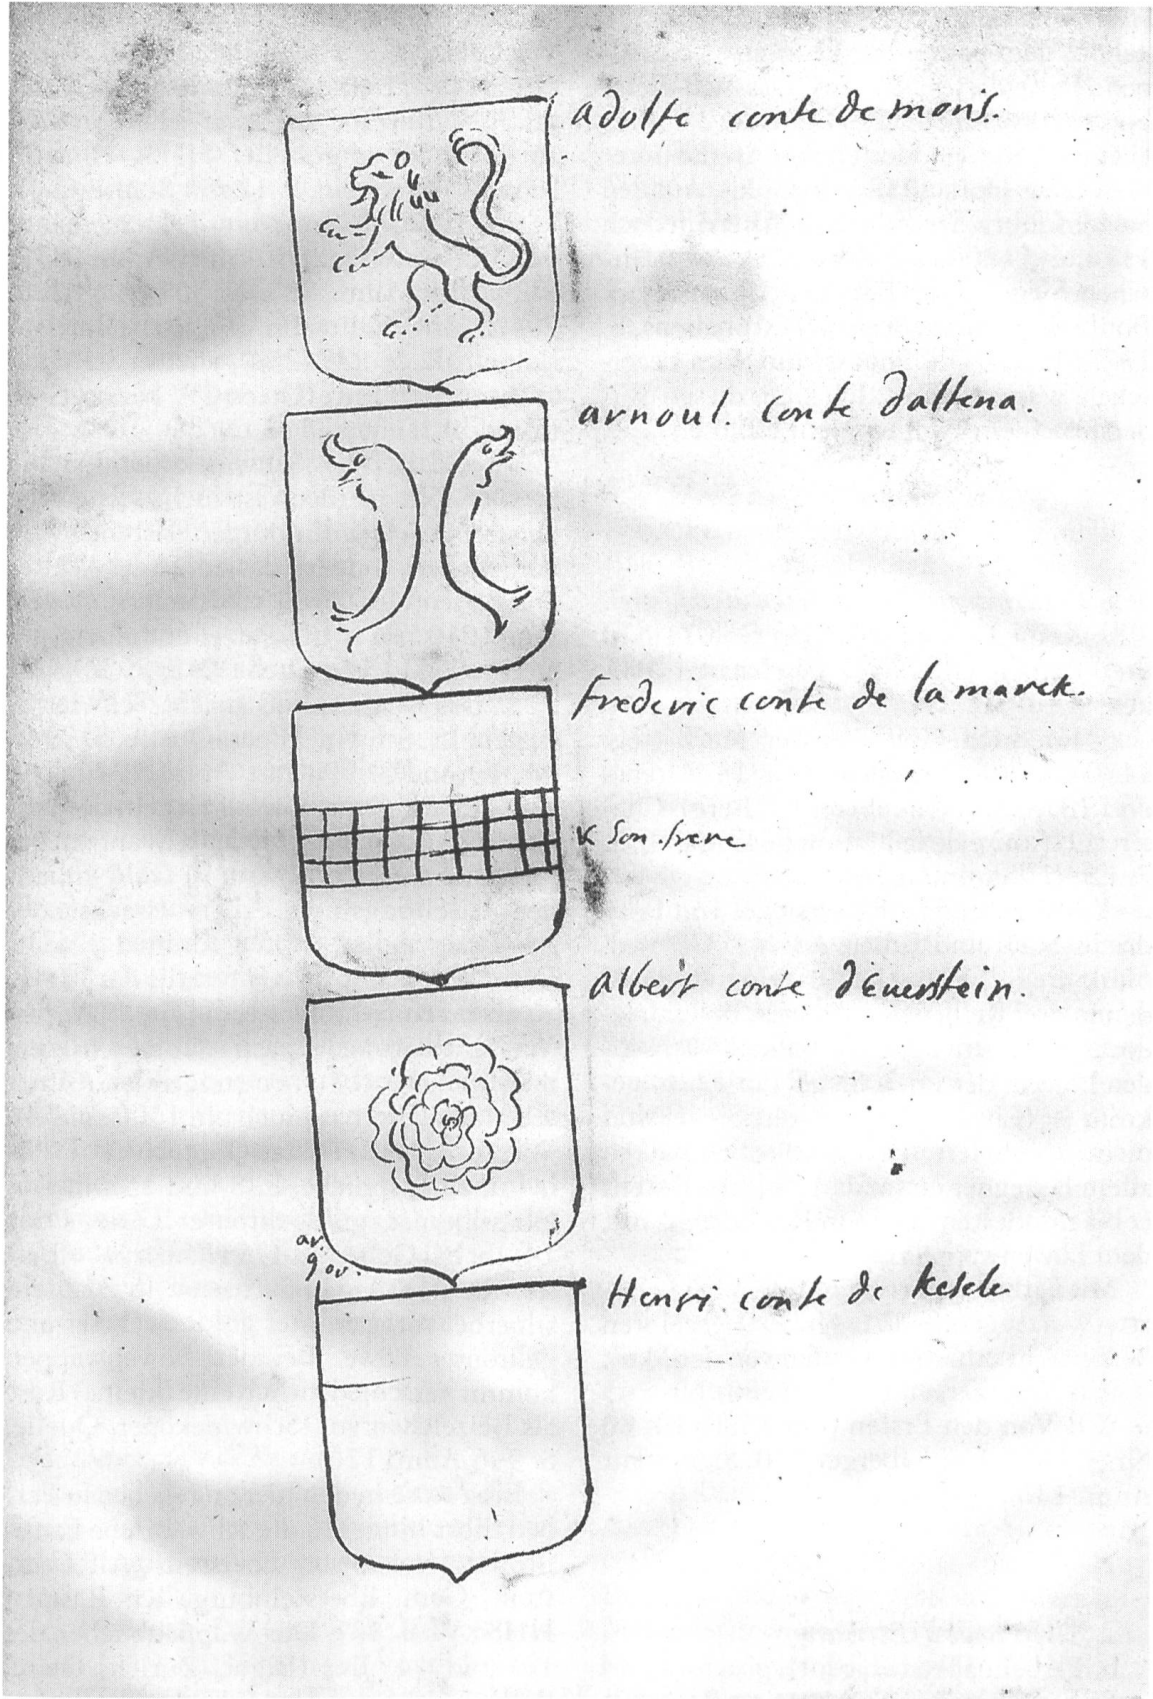 adolfe conte de mons.
arnoul. conte daltena.
frederic conte de lamarck.
& son frere
Albert conte dEuerstein.
ar.
g ou.
Henri conte de kesele